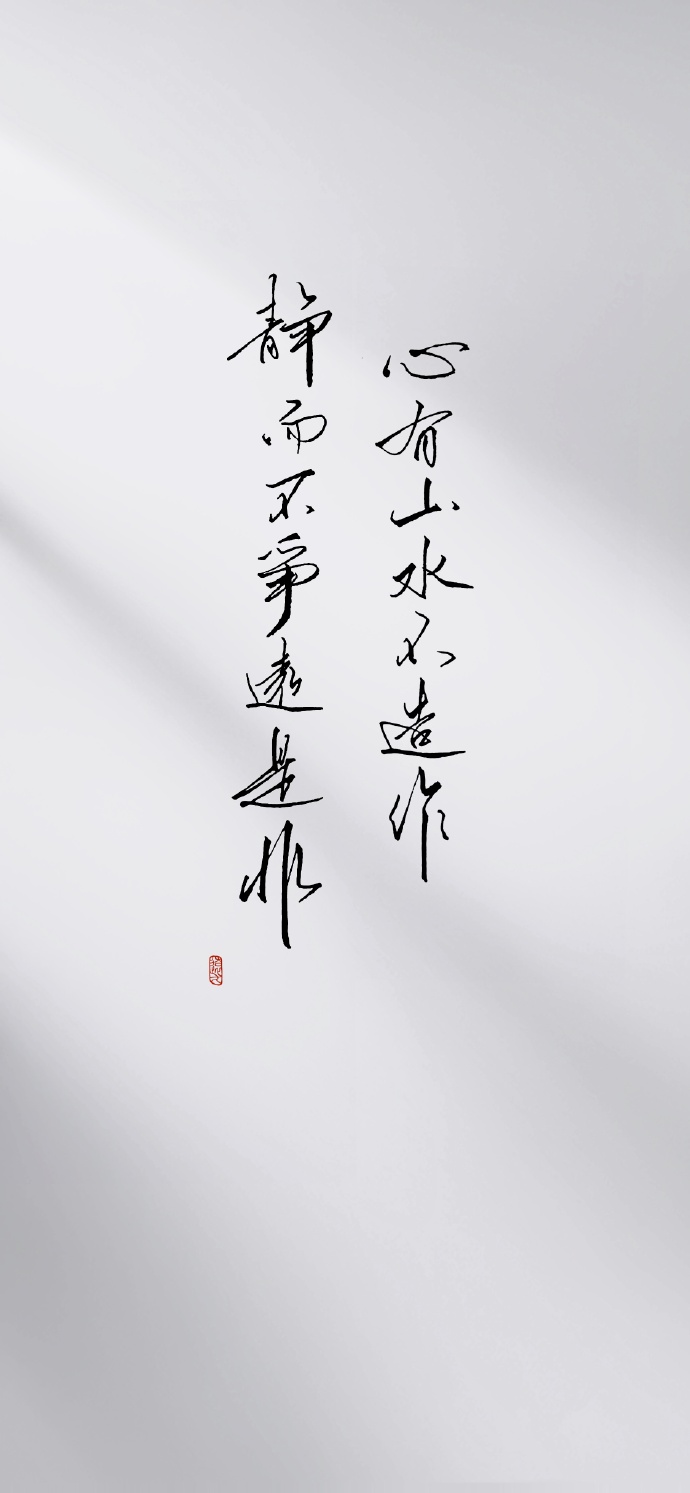 心有山水不造作
静而不爭遠是非